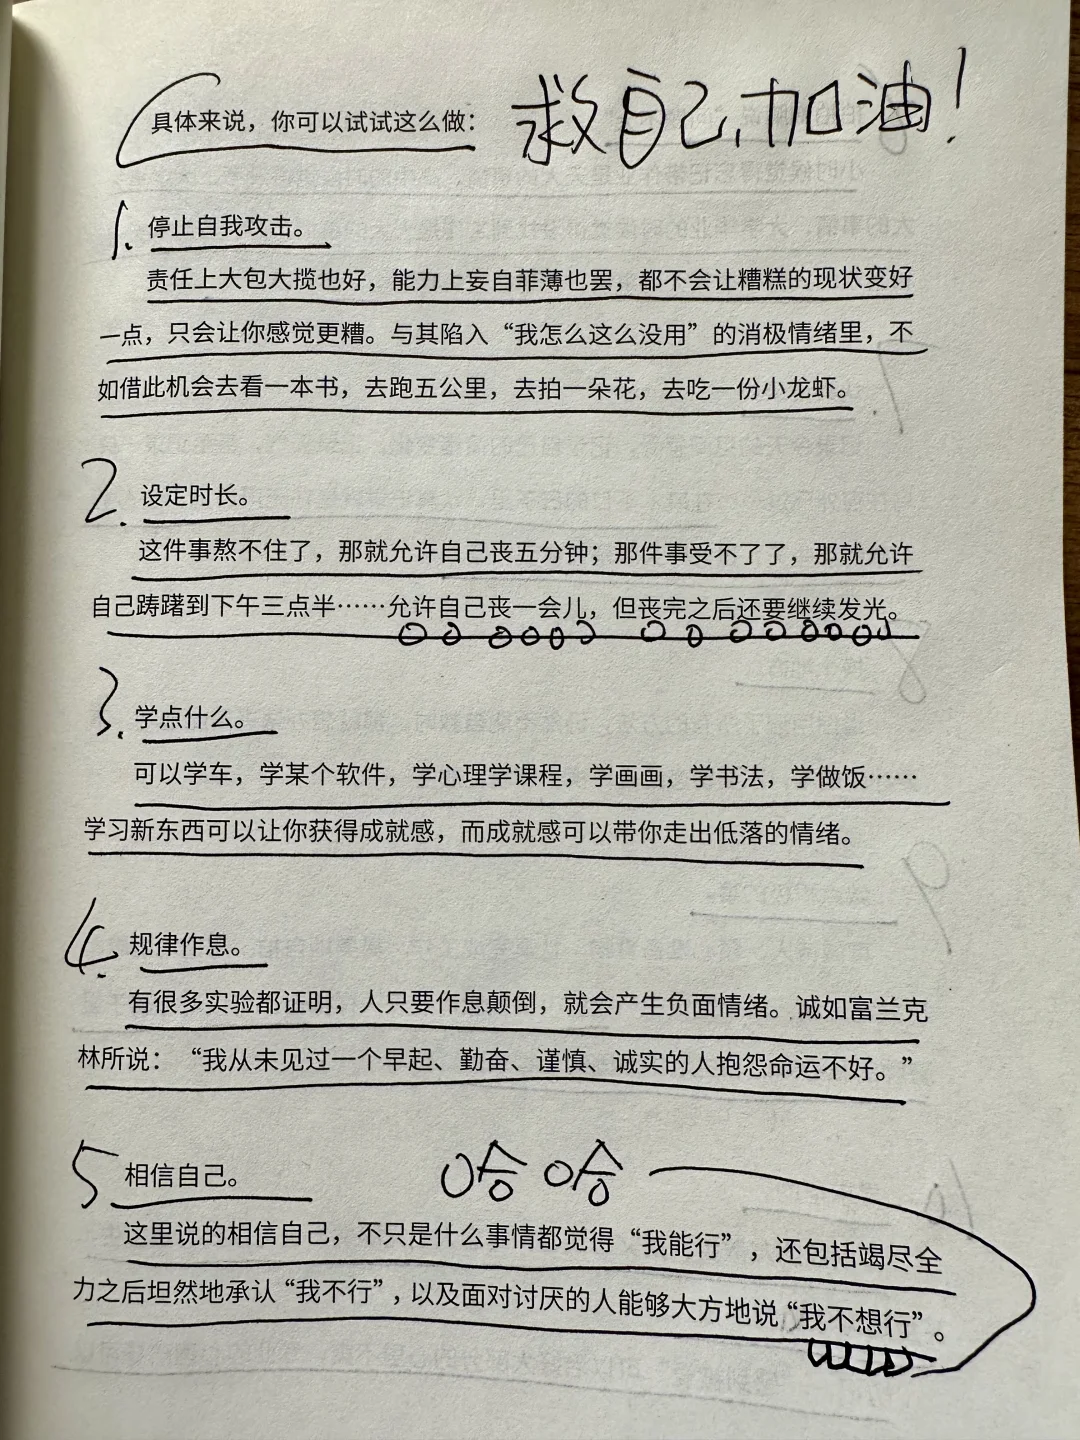 具体来说，你可以试试这么做： 救自己，加油！
1. 停止自我攻击。
责任上大包大揽也好，能力上妄自菲薄也罢，都不会让糟糕的现状变好
一点，只会让你感觉更糟。与其陷入“我怎么这么没用”的消极情绪里，不
如借此机会去看一本书，去跑五公里，去拍一朵花，去吃一份小龙虾。
2. 设定时长。
这件事熬不住了，那就允许自己丧五分钟；那件事受不了了，那就允许
自己踌躇到下午三点半……允许自己丧一会儿，但丧完之后还要继续发光。
3. 学点什么。
可以学车，学某个软件，学心理学课程，学画画，学书法，学做饭……
学习新东西可以让你获得成就感，而成就感可以带你走出低落的情绪。
4. 规律作息。
有很多实验都证明，人只要作息颠倒，就会产生负面情绪。诚如富兰克
林所说：“我从未见过一个早起、勤奋、谨慎、诚实的人抱怨命运不好。”
5 相信自己。 哈哈
这里说的相信自己，不只是什么事情都觉得“我能行”，还包括竭尽全
力之后坦然地承认“我不行”，以及面对讨厌的人能够大方地说“我不想行”。